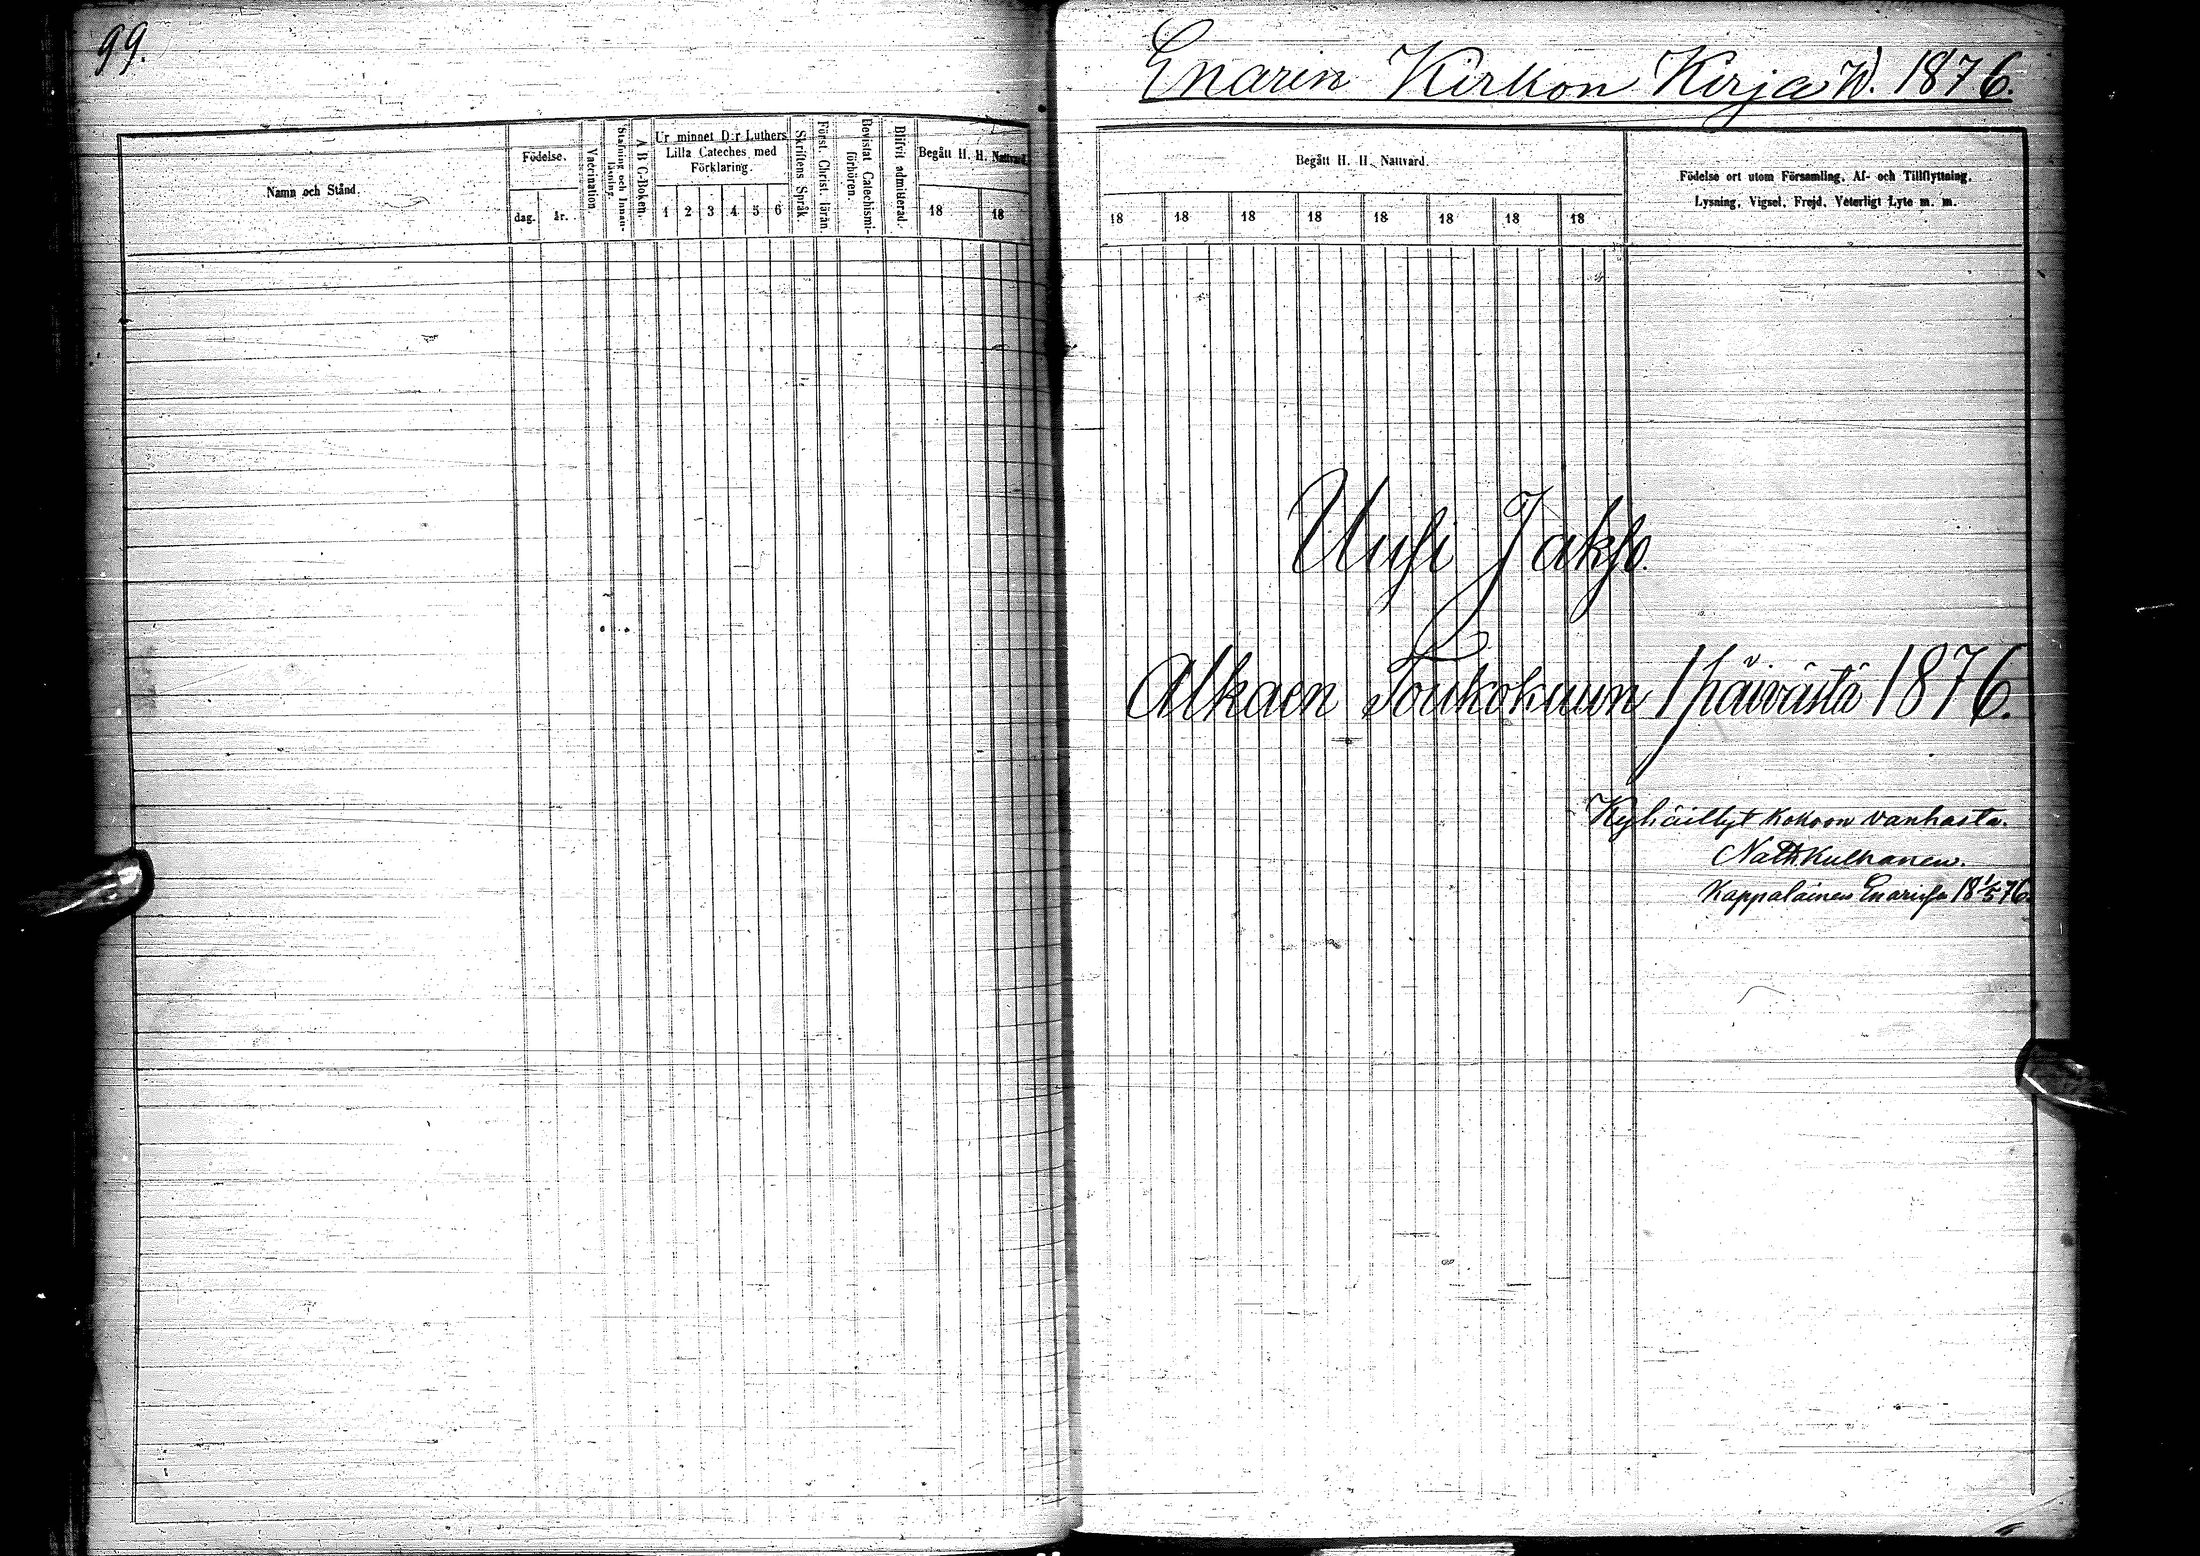 99.
Namn och Stånd.
Födelse.
dag.
år.
Vaccination.
Stafning och Innanläsning.
A B C-Boken.
Ur minnet D:r Luthers
Lilla Cateches med
Förklaring.
1 2 3 4 5 6
Skriftens Språk
Först. Christ. läran.
Bevistat Catechismiförhören.
Blifvit admitterad.
Begått H. H. Nattvard.
18 18
Enarin Kirkon Kirja W. 1876.
Begått H. H. Nattvard.
18 18 18 18 18 18 18 18
Födelse ort utom Församling, Af- och Tillflyttning,
Lysning, Vigsel, Frejd, Veterligt Lyte m. m.
Uusi Jakso.
Alkaen Toukokuun 1 päivästä 1876.
Kyhäillyt kokoon vanhasta.
Kappalainen Enarissa 18 1/5 76.